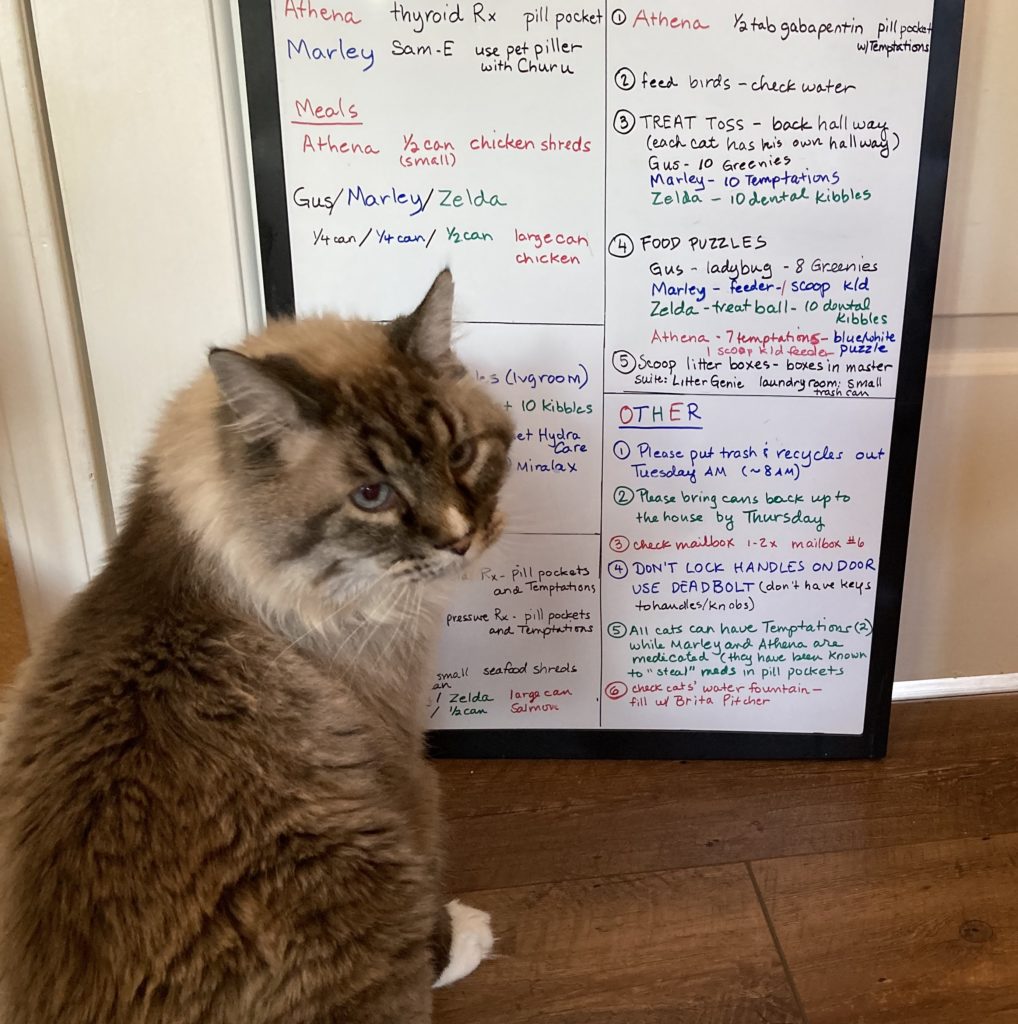 Athena thyroid Rx pill pocket
Marley Sam-E use pet piller
with Churu
Meals
Athena 1/2 can chicken shreds
(small)
Gus/Marley/Zelda
1/4 can/1/4 can/ 1/2 can large can
chicken
(lvgroom)
+ 10 kibbles
Hydra
Care
Miralax
Rx- pill pockets
and Temptations
pressure Rx- pill pockets
and Temptations
small seafood shreds
/ Zelda large can
/ 1/2 can Salmon
① Athena 1/2 tab gabapentin pill pocket
w/Temptations
② feed birds - check water
③ TREAT TOSS - back hallway
(each cat has his own hallway)
Gus- 10 Greenies
Marley- 10 Temptations
Zelda - 10 dental kibbles
④ FOOD PUZZLES
Gus - ladybug - 8 Greenies
Marley - feeder-1 scoop k/d
Zelda - treat ball - 10 dental
kibbles
Athena - 7 temptations - blue/white
1 scoop k/d feeder puzzle
⑤ Scoop litter boxes- boxes in master
suite: Litter Genie laundry room: small
trash can
OTHER
① Please put trash & recycles out
Tuesday AM (~8AM)
② Please bring cans back up to
the house by Thursday
③ check mailbox 1-2x mailbox #6
④ DON'T LOCK HANDLES ON DOOR
USE DEADBOLT (don't have keys
to handles/knobs)
⑤ All cats can have Temptations (2)
while Marley and Athena are
medicated (they have been known
to "steal" meds in pill pockets
⑥ check cats' water fountain -
fill w/ Brita Pitcher